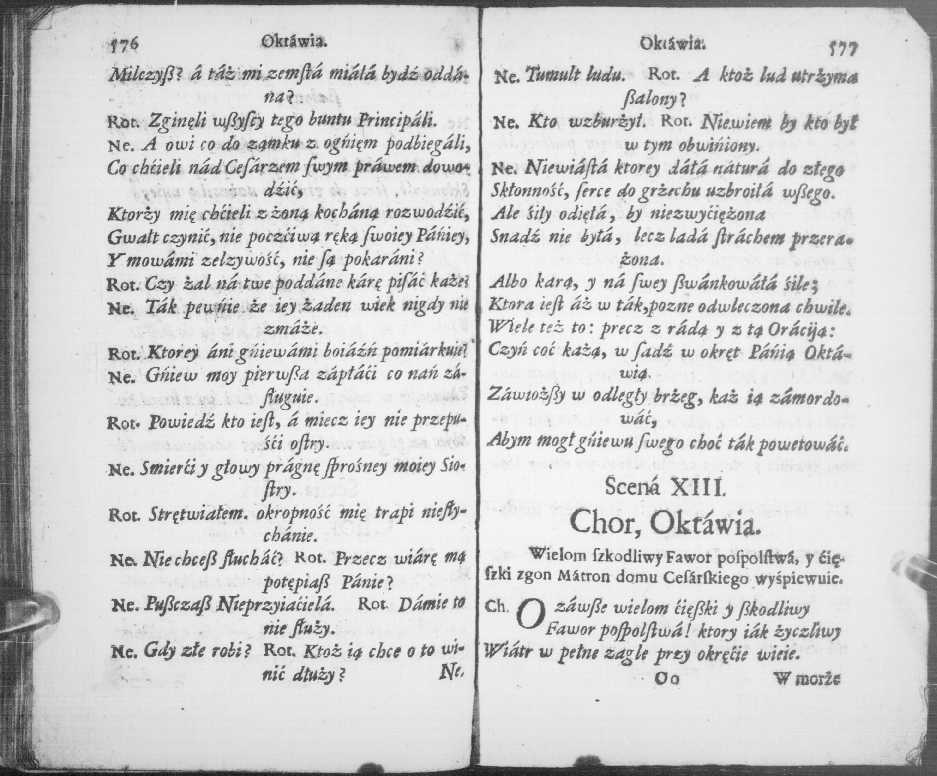 576 Oktáwia.
Milczyß? á táż mi zemſtá miáłá bydź oddá-
ná?
Rot. Zginęli wßyſcy tego buntu Principáli.
Ne. A owi co do zamku z ogńięm podbiegáli,
Co chćieli nád Ceſárzem ſwym práwem dowo-
dźić,
Ktorży mię chćieli z żoną kocháną rozwodźić,
Gwałt czynić, nie poczćiwą ręką ſwoiey Páńiey,
Y mowámi zelzywość, nie ſą pokaráni?
Rot. Czy żal ná twe poddáne kárę piſáć każe?
Ne. Ták pewńie że iey żaden wiek nigdy nie
zmáże.
Rot. Ktorey áni gńiewámi boiáźń pomiárkuie?
Ne. Gńiew moy pierwſßa zápłáći co nań zá-
ſługuie.
Rot. Powiedź kto ieſt, á miecz iey nie przepu-
śći oſtry.
Ne. Smierći y głowy prágnę ſprosney moiey Sio-
ſtry.
Rot. Strętwiałem. okropność mię trapi nieſły-
chánie.
Ne. Nie chceß ſłucháć? Rot. Przecz wiárę mą
potępiaß Pánie?
Ne. Pußczaß Nieprzyiaćielá. Rot. Dámie to
nie ſłuży.
Ne. Gdy złe robi? Rot. Ktoż ią chce o to wi-
nić dłuży?
Ne.
Oktáwia. 577
Ne. Tumult ludu. Rot. A ktoż lud utrżyma
ßalony?
Ne. Kto wzburżył. Rot. Niewiem by kto był
w tym obwińiony.
Ne. Niewiáſtá ktorey dáłá náturá do złego
Skłonność, ſerce do grzechu uzbroiłá wßego.
Ale śiły odięłá, by niezwyćiężona
Snadź nie byłá, lecz ladá ſtráchem przera-
żona.
Albo karą, y ná ſwey ßwánkowáłá śile;
Ktora ieſt áż w ták pozne odwleczona chwile.
Wiele też to: precz z rádą y z tą Oráciją:
Czyń coć każą, w ſadź w okręt Páńią Oktá-
wią.
Záwiożßy w odległy brżeg, każ ią zámordo-
wáć,
Abym mogł gńiewu ſwego choć ták powetowáć.
Scená XIII.
Chor, Oktáwia.
Wielom ſzkodliwy Fawor poſpolſtwá, y ćię-
ſzki zgon Mátron domu Ceſárſkiego wyśpiewuie.
Ch. O záwße wielom ćięßki y ßkodliwy
Fawor poſpolſtwá! ktory iák życzliwy
Wiátr w pełne żagle przy okręćie wieie.
Oo W morże